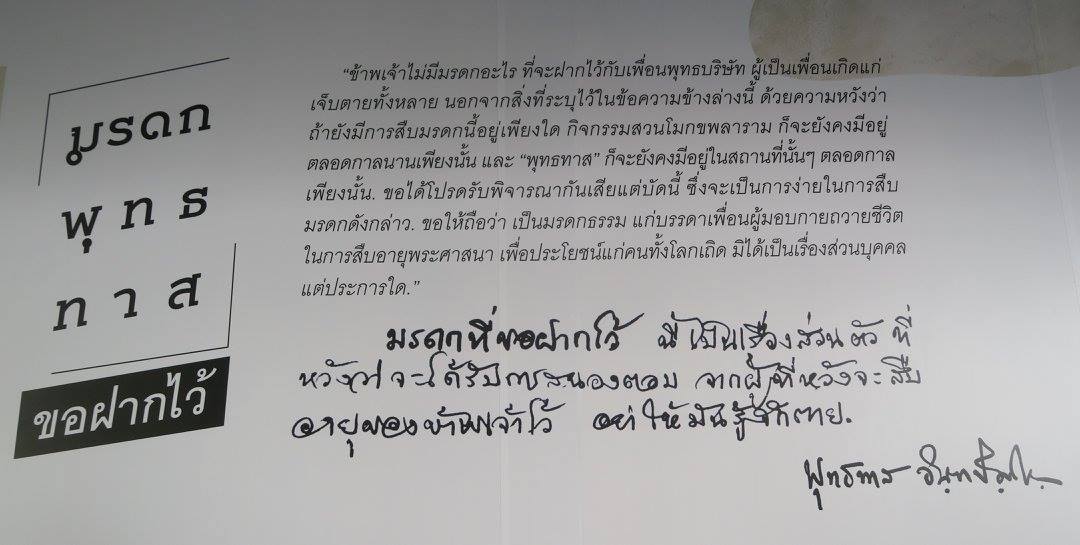 มรดก
พุทธ
ทาส
ขอฝากไว้
“ข้าพเจ้าไม่มีมรดกอะไร ที่จะฝากไว้กับเพื่อนพุทธบริษัท ผู้เป็นเพื่อนเกิดแก่
เจ็บตายทั้งหลาย นอกจากสิ่งที่ระบุไว้ในข้อความข้างล่างนี้ ด้วยความหวังว่า
ถ้ายังมีการสืบมรดกนี้อยู่เพียงใด กิจกรรมสวนโมกขพลาราม ก็จะยังคงมีอยู่
ตลอดกาลนานเพียงนั้น และ “พุทธทาส” ก็จะยังคงมีอยู่ในสถานที่นั้นๆ ตลอดกาล
เพียงนั้น. ขอได้โปรดรับพิจารณากันเสียแต่บัดนี้ ซึ่งจะเป็นการง่ายในการสืบ
มรดกดังกล่าว. ขอให้ถือว่า เป็นมรดกธรรม แก่บรรดาเพื่อนผู้มอบกายถวายชีวิต
ในการสืบอายุพระศาสนา เพื่อประโยชน์แก่คนทั้งโลกเถิด มิได้เป็นเรื่องส่วนบุคคล
แต่ประการใด.”
มรดกที่ขอฝากไว้ นี้เป็นเรื่องส่วนตัว ที่
หวังว่าจะได้รับการสนองตอบ จากผู้ที่หวังจะสืบ
อายุของข้าพเจ้าไว้ อย่าให้มันรู้จักตาย.
พุทธทาส อินฺทปญฺโญ